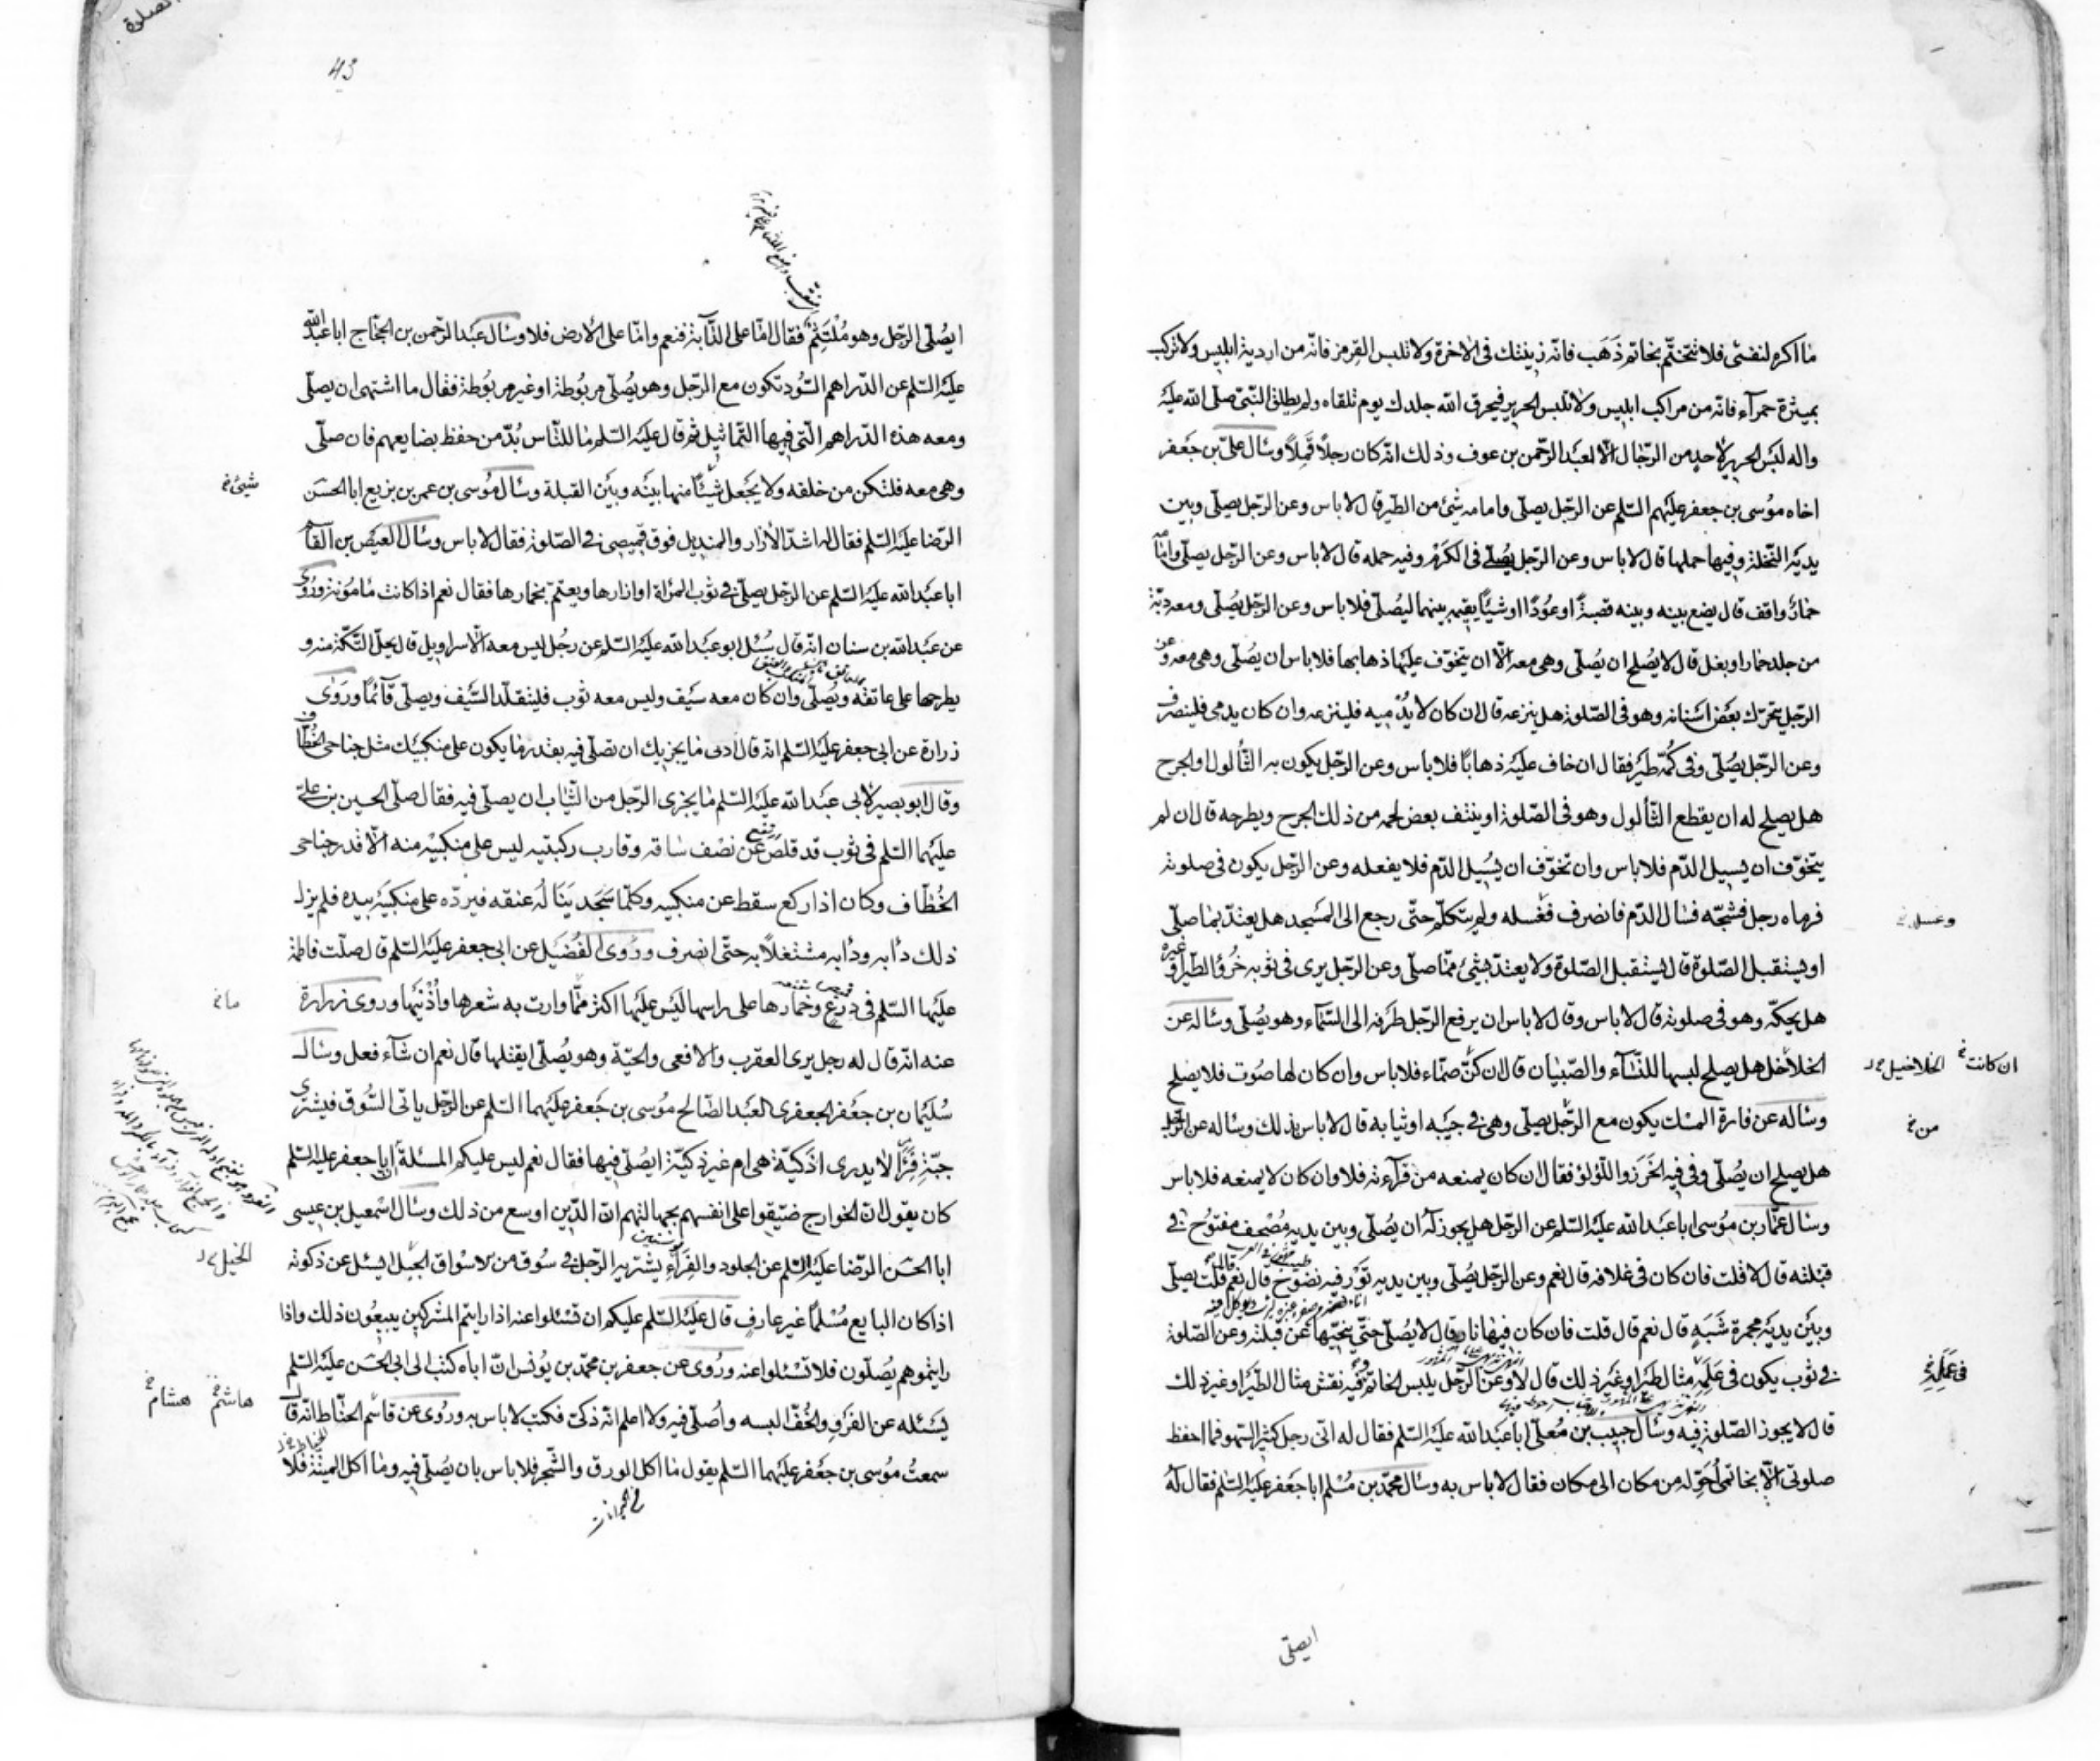 ما اكره لنفسى فلا تتختّم بخاتم ذَهَب فانّه زينتك فى الاخرة ولا تلبس القِرمز فانّه من اردية ابليس ولا تركب
بميثرة حمرآء فانّه من مراكب ابليس ولا تلبس الحرير فيحرق الله جلدك يوم تلقاه ولم يطلق النّبىّ صلى الله عليه
واله لبَس الحرير لاحدٍ من الرّجال الّا لعبَد الرّحمن بن عوف وذلك انّه كان رجلاً قَمِلاً وسأل علىّ بن جَعفر
اخاه موُسى بن جعفر عليهم السّلم عن الرّجل يصلّى وامامه شَئ من الطّير قال لا باس وعن الرّجل يصلّى وبين
يديَه النّخلة وفيها حملها قال لا باس وعن الرّجل يُصلّے فى الكرَمْ وفيه حمله قال لا باس وعن الرّجل يصلّى وامَامه
حمارٌ واقف قال يضع بينه وبينه قصبةً او عُودًا او شيئًا يقيمه بينهما ليُصلّى فلا باس وعن الرّجل يُصلّى ومعه دبّة
من جلد حمار او بغل قال لا يُصلح ان يُصلّى وهى معه الّا ان يتخوّف عليَها ذهابها فلا باس ان يُصلّى وهى معه وعن
الرّجل يتحرّك بعَض اسَنانه وهو فى الصّلوة هل ينزعه قال ان كان لا يُدْميه فلينزعه وان كان يدمى فلينصرف
وعن الرّجل يُصلّى وفى كُمّه طيَر فقال ان خاف عليَه ذهابًا فلا باس وعن الرّجل يكون به الثّألول او الجرح
هل يصلح له ان يقطع الثّألول وهو فى الصّلوة او ينتف بعض لحمه من ذلك الجرح ويطرحه قال ان لم
يتخوّف ان يسيل الدّم فلا باس وان تخوّف ان يُسَيل الدّم فلا يفعله وعن الرّجل يكون فى صلوته
فرماه رجل فشجّه فسال الدّم فانصرف فغسله ولم يتكلّم حتّى رجع الى المسَجد هل يعتدّ بما صلّى
وغسل خ
او يستقبل الصّلوة قال يستقبل الصّلوة ولا يعتدّ بشئ ممّا صلّى وعن الرّجل يرى فى ثوبه خُرؤ الطّير او غيره
هل يحكّه وهو فى صلوته قال لا باس وقال لا باس ان يرفع الرّجل طرَفه الى السّمَاء وهو يُصلّى وسَاله عن
الخلاخل هل يصلح لبسها للنّسَآء والصّبَيان قال ان كنّ صمّاء فلا باس وان كان لها صَوت فلا يصلح
ان كانت خ الخلاخيل خ د
وساله عن فارة المسْك يكون مع الرّجل يصلّى وهى فى جَيبه او ثيابه قال لا باس بذلك وساله عن الرّجل
من خ
هل يصلح ان يُصلّى وفى فيه الخَرَز واللّؤلؤ فقال ان كان يمنعه من قرآءته فلا وان كان لا يمنعه فلا باس
وسال عمّار بن موُسى ابا عبَد الله عليَه السّلم عن الرّجل هل يجوز لَهُ ان يُصلّى وبين يديه مُصْحف مفتوُح فى
قبْلته قال لا قلت فان كان فى غلافه قال نعم وعن الرّجل يُصلّى وبين يديه تَوْر فيه نضوُح قال نعم قلت يصلّى
وبيَن يديَه مجمرة شَبَهٍ قال نعم قال قلت فان كان فيها نار قال لا يُصلّى حتّى ينحّيها عَن قبلته وعن الصّلوة
فى ثوب يكون فى عَلَمِه مثال طيَر او غيَر ذلك قال لا وعن الرّجل يلبس الخاتم فيه نقش مثال الطّيَر او غير ذلك
قال لا يجوز الصّلوة فيه وسال حبيب بن مُعلّى ابا عبَد الله عليَه السّلم فقال له انّى رجل كثير السّهو فما احفظ
صلوتى الّا بخاتمى اُحَوّله من مكان الى مكان فقال لا باس به وسال محمّد بن مُسْلم ابا جَعفر عليَه السّلم فقال لَهُ
ايصلّى
43
ايصُلّى الرّجل وهو مُلْتَثِمٌ فقال امّا على الدّآبة فنعم وامّا على الارض فلا وسَال عبَد الرّحمن بن الحجّاج ابا عبد الله
عليَه السّلم عن الدّراهم السّوُد تكون مع الرّجل وهو يُصلّى مربُوطة او غير مربُوطة فقال ما اشتهى ان يصلّى
ومعه هذه الدّراهم الّتى فيها التّماثيل ثم قال عليَه السّلم ما للنّاس بُدّ من حفظ بضايعهم فان صلّى
وهى معه فلتكن من خلفه ولا يجَعل شيَئًا منها بينَه وبيَن القبلة وسَال موُسى بن عمر بن بزيع ابا الحسَن
شيئ خ
الرّضا عليَه السّلم فقال له اشدّ الازار والمنديل فوق قميصى فى الصّلوة فقال لا باس وسأل العيَص بن القاسم
ابا عبَد الله عليَه السّلم عن الرّجل يصلّى فى ثوب المرْاة او ازارها ويعتمّ بخمارها فقال نعم اذا كانت مامونة ورُوى
عن عبَد الله بن سنان انّه قال سُئل ابو عبَد الله عليَه السّلم عن رجُل ليس معه الّا سراويل قال يحلّ التّكّة منه و
يطرحها على عاتقه ويُصلّى وان كان معه سيَف وليس معه ثوب فليتقلّد السّيَف ويصلّى قآئمًا ورَوٰى
زرارة عن ابى جعفر عليَه السّلم انّه قال ادنى ما يجزيك ان تصلّى فيه بقدر ما يكون على منكبيَك مثل جناحى الخُطّاف
وقال ابو بصير لابى عبَد الله عليَه السّلم ما يجزى الرّجل من الثّياب ان يصلّى فيه فقال صلّى الحسين بن علىّ
عليَهما السّلم فى ثوب قد قلصَ عَن نصْف سَاقه وقارب ركبتيه ليس على منكبيَْه منه الّا قدر جناحى
الخُطّاف وكان اذا ركع سقط عن منكبيه وكلّما سَجَد يَنَالُه عنقه فيردّه على منكبيَه بيده فلم يزل
ذلك دأبه ودأبه مشتغلاً به حتّى انصرف ورُوى الفُضيَل عن ابى جعفر عليَه السّلم قال صلّت فاطمة
عليَها السّلم فى دِرْعٍ وخمارها على راسها ليَس عليَها اكثر ممّا وارت به شعرها واُذُنيَها وروى زرارة
ما خ
عنه انّه قال له رجل يرى العقرب والافعى والحيّة وهو يُصلّى ايقتلها قال نعم ان شآء فعل وسَال
سُليَمان بن جَعفر الجعفرى العبَد الصّالح موُسى بن جَعفر عليَهما السّلم عن الرّجل ياتى السّوُق فيشترى
جبّة فِرَآءٍ لا يدرى اذكيّة هى ام غير ذكيّة ايصُلّى فيها فقال نعم ليس عليكم المسئلة انّ ابا جعفر عليه السّلم
كان يقول انّ الخوارج ضيّقوا على انفسهم بجهالتهم انّ الدّين اوسع من ذلك وسَال اسْمعيل بن عيسى
ابا الحسَن الرّضا عليَه السّلم عن الجلود والفِرَآءِ يشتريه الرّجل فى سُوق من اسْواق الجبَل ايسئل عن ذكوته
الخيل خ د
اذا كان البايع مُسْلمًا غير عارفٍ قال عليَه السّلم عليكم ان تسْئلوا عنه اذا رايتم المشركين يبيعُون ذلك واذا
رايتموهم يُصلّون فلا تسْئلوا عنه ورُوى عن جعفر بن محمّد بن يُونس انّ اباه كتب الى ابى الحسَن عليَه السّلم
يسَئله عن الفَرَوِ والخُفّ البسه واُصلّى فيه ولا اعلم انّه ذكىّ فكتب لا باس به ورُوى عن قاسم الحنّاط انّه قال
هاشم خ هشام خ
سمعتُ موُسى بن جعَفر عليَهما السّلم يقول ما اكل الورق والشّجر فلا باس بان يُصَلّى فيه وما اكل الميتة فلا